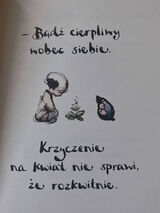 - Bądź cierpliwy
wobec siebie.
Krzyczenie
na kwiat nie sprawi,
że rozkwitnie.